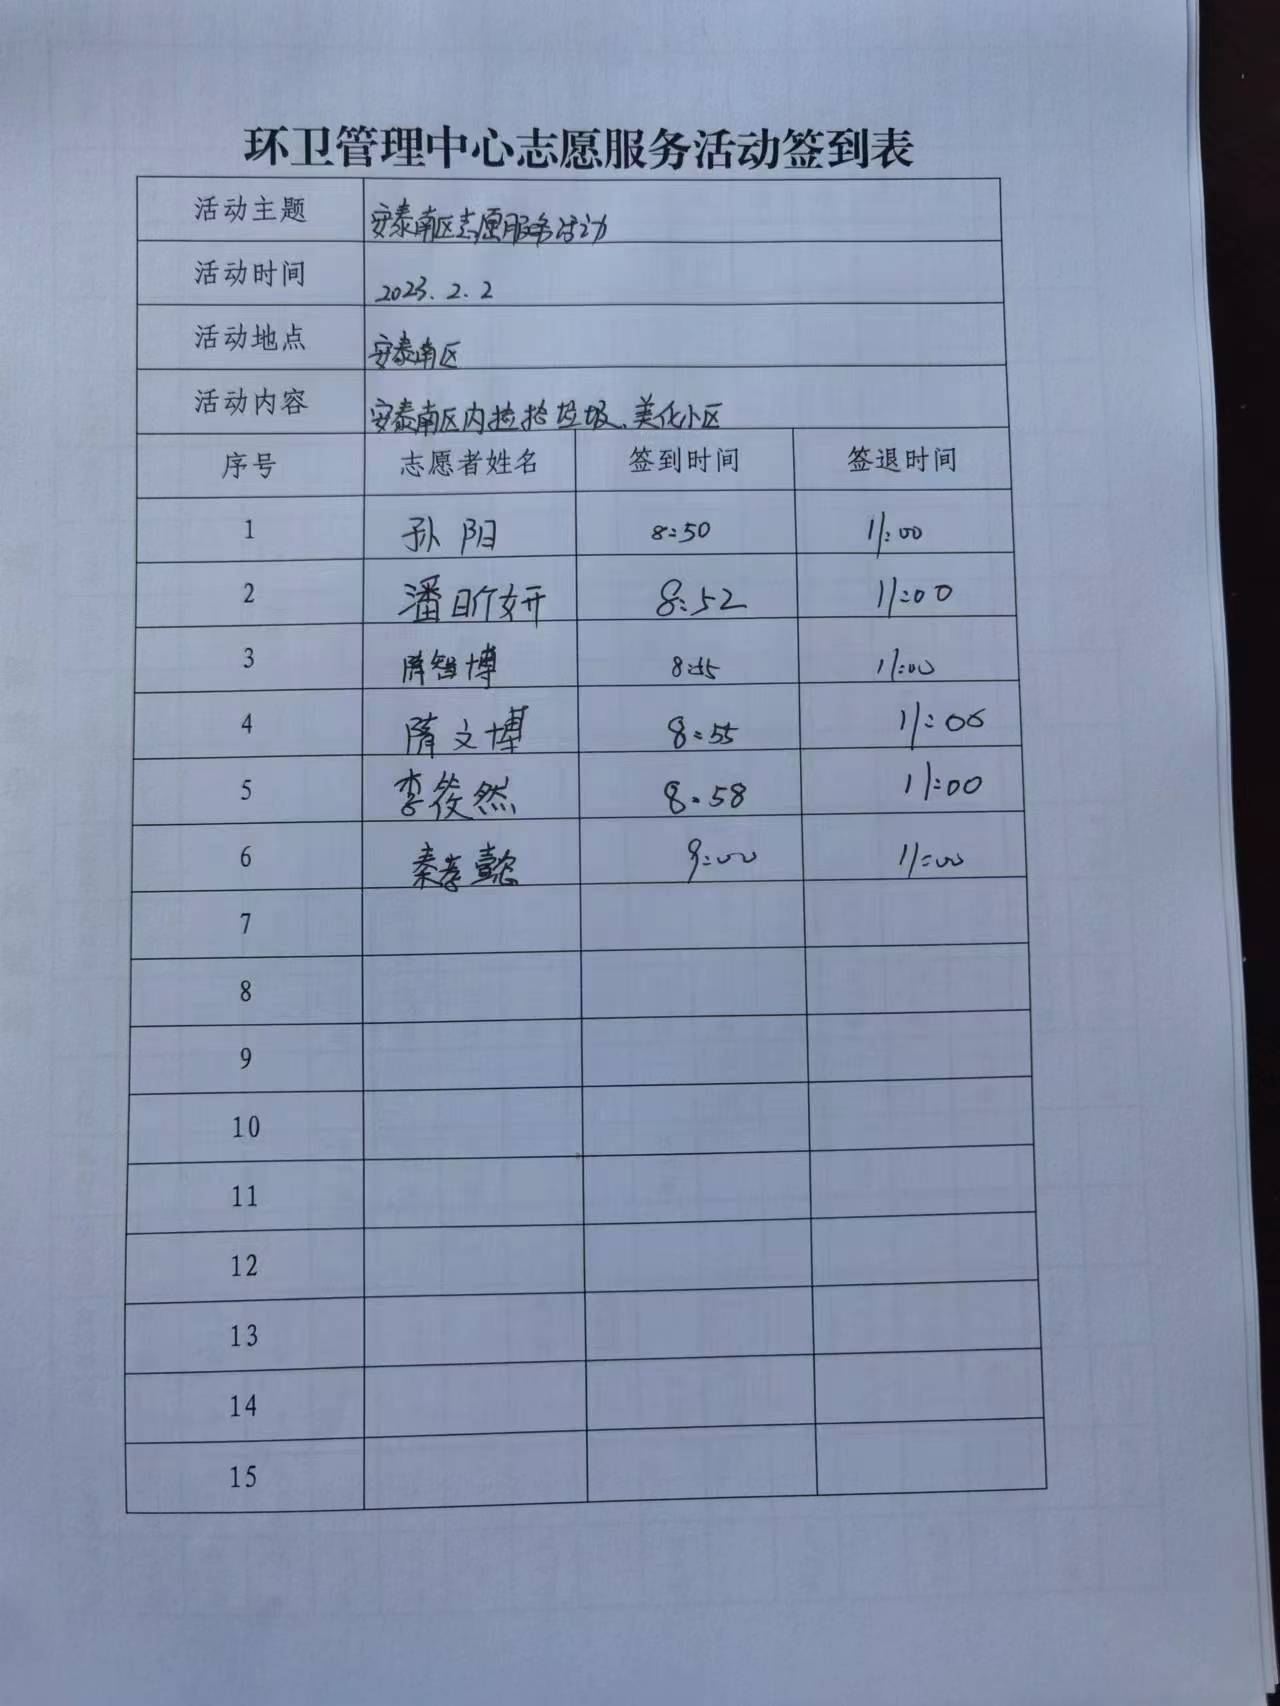 环卫管理中心志愿服务活动签到表
活动主题 安泰南区志愿服务活动
活动时间 2023.2.2
活动地点 安泰南区
活动内容 安泰南区内捡拾垃圾、美化小区
序号 志愿者姓名 签到时间 签退时间
1 孙阳 8:50 11:00
2 潘昕妍 8:52 11:00
3 隋智博 8:55 11:00
4 隋文博 8:55 11:00
5 李筱然 8:58 11:00
6 秦 懿 9:00 11:00
7
8
9
10
11
12
13
14
15